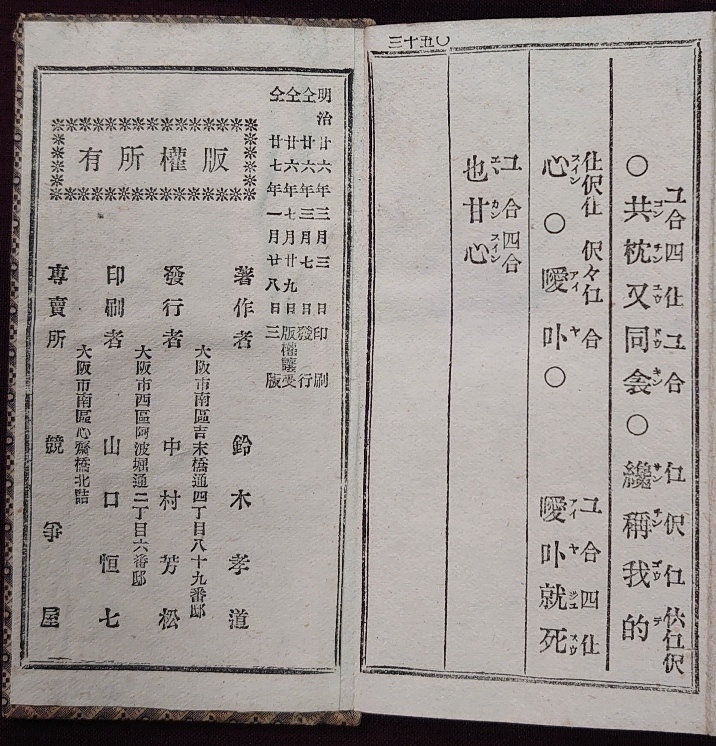 三十五〇
ユ合四仕ユ合
○共枕又同衾○纔稱我的
合 ユ合四仕
心○噯卟○噯卟就死
ユ合四合
也甘心
明治廿六年三月三日印刷
仝廿六年三月七日發行
仝廿六年七月廿九日版權讓受
仝廿七年一月廿八日三版
版權所有
著作者 鈴木孝道
大阪市南區吉末橋通四丁目八十九番邸
發行者 中村芳松
大阪市西區阿波堀通二丁目六番邸
印刷者 山口恒七
大阪市南區心齋橋北詰
專賣所 競爭屋